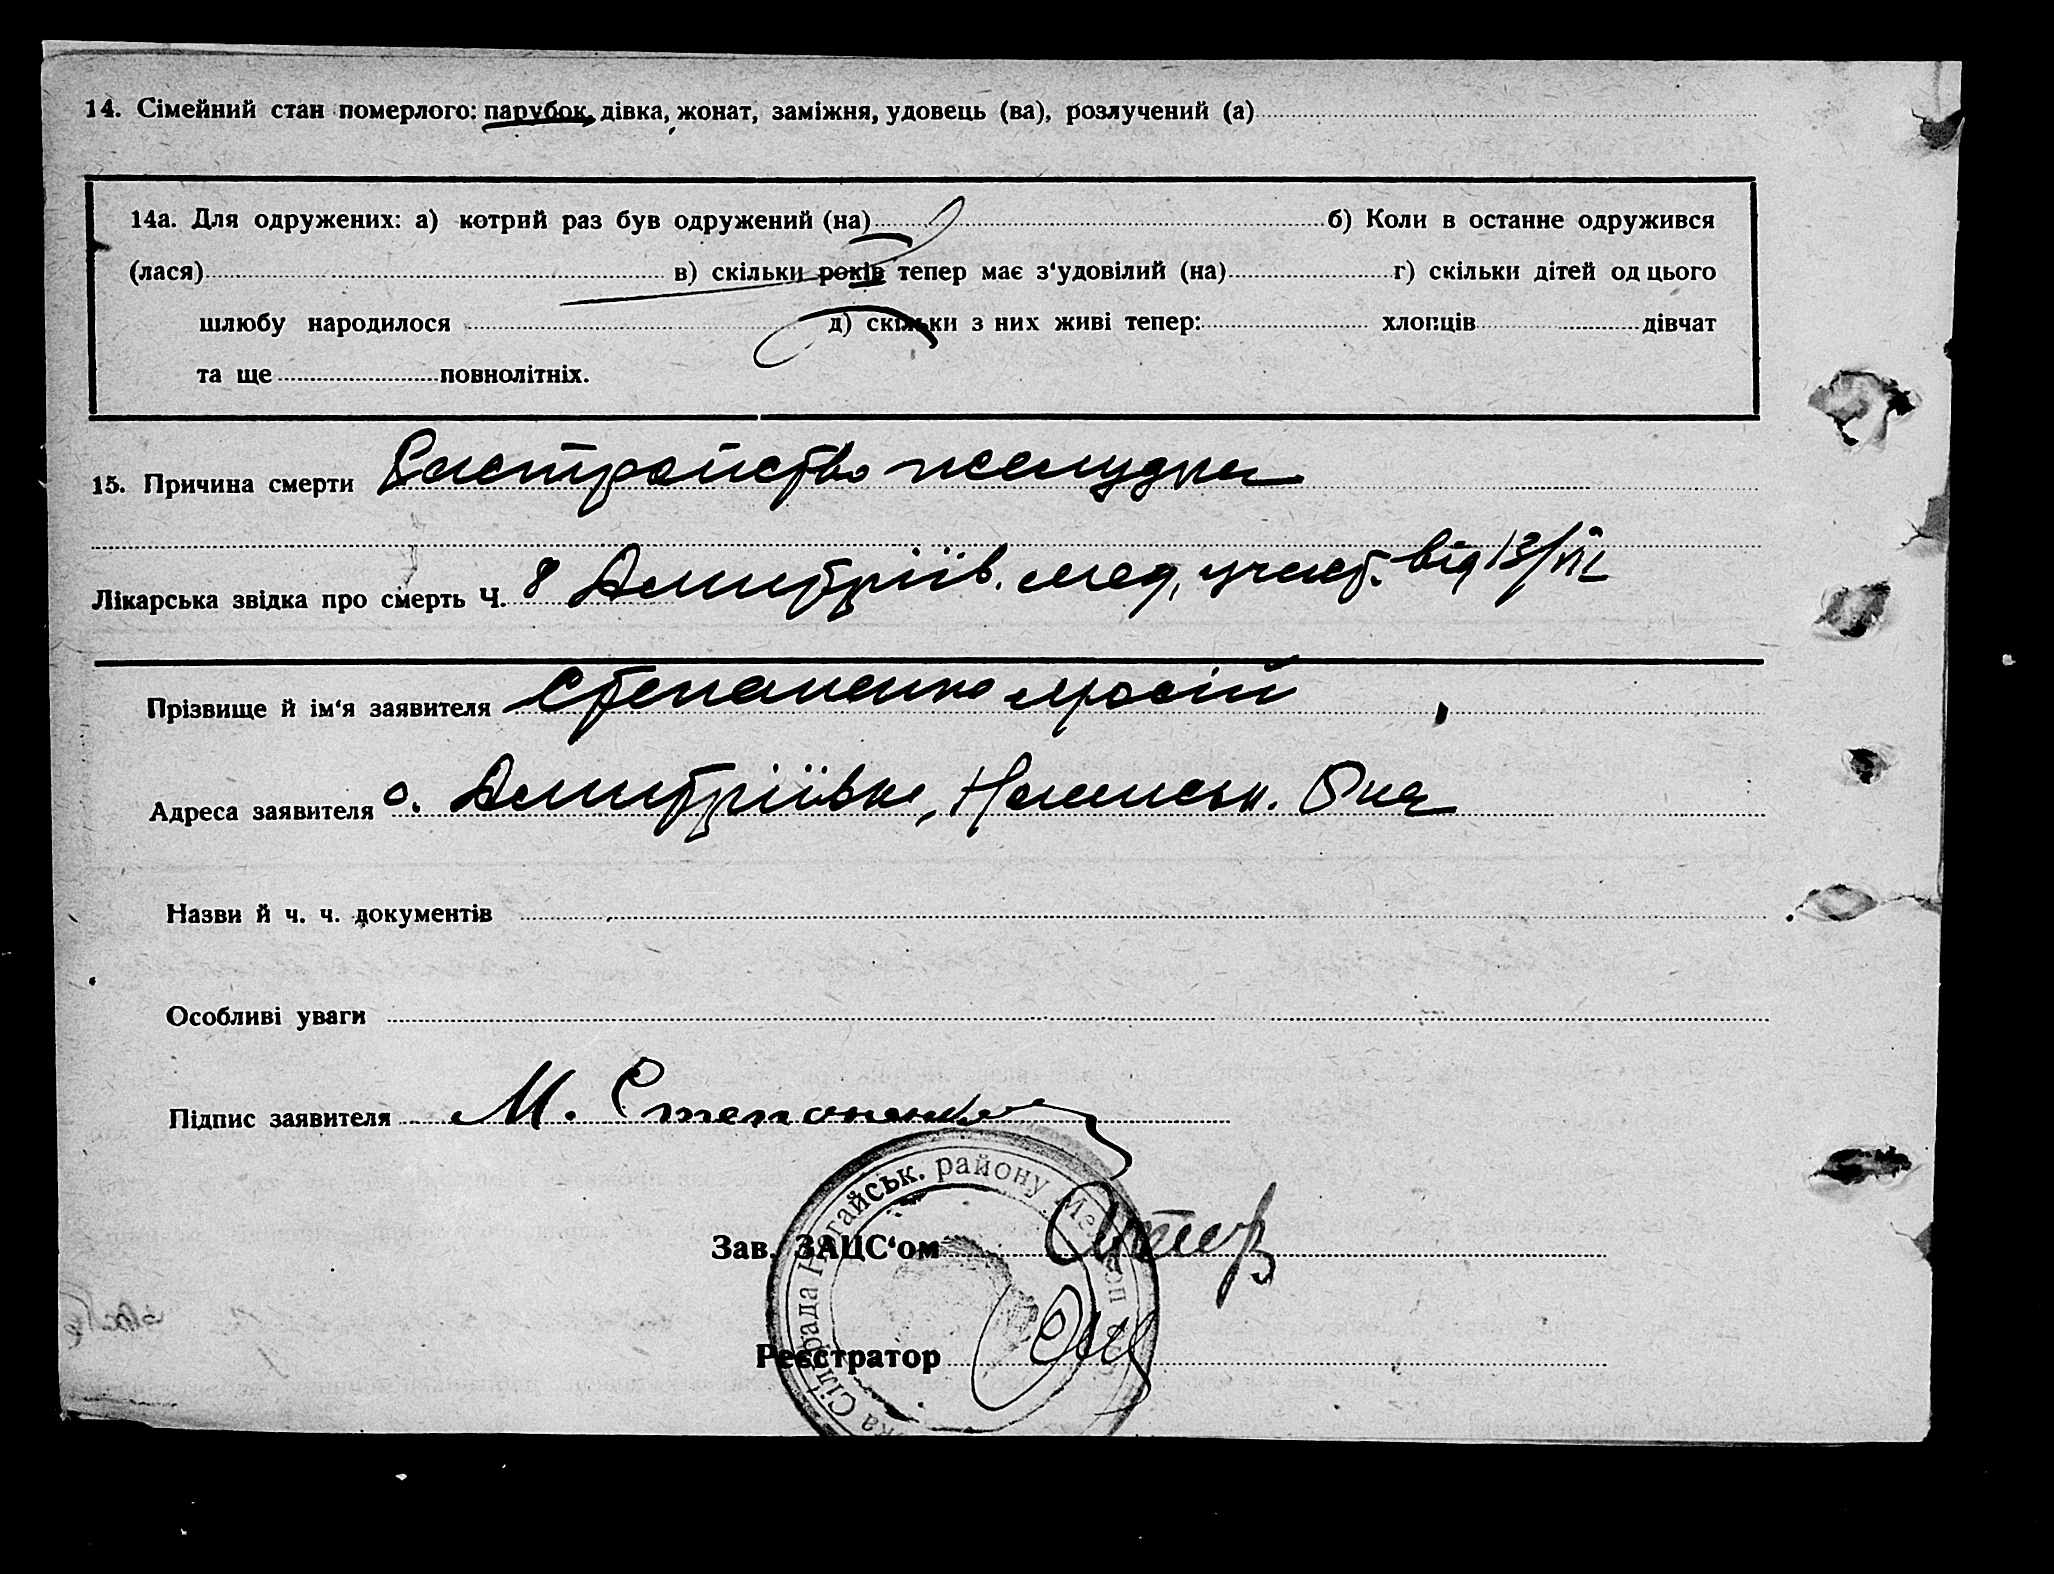 14. Сімейний стан померлого: парубок, дівка, жонат, заміжня, удовець (ва), розлучений (а)
14а. Для одружених: а) котрий раз був одружений (на) б) Коли в останнє одружився
(лася) в) скільки років тепер має з‘удовілий (на) г) скільки дітей од цього
шлюбу народилося д) скільки з них живі тепер: хлопців дівчат
та ще повнолітніх.
15. Причина смерти Растройство желудка
Лікарська звідка про смерть Ч. 8 Дмитріїв. мед. участ. від 13/VII
Прізвище й ім‘я заявителя Степаненко
Адреса заявителя с. Дмитріївка,
Назви й ч. ч. документів
Особливі уваги
Підпис заявителя М. Степоненко
Зав. ЗАЦС‘ом
Реєстратор
ка Сільрада Ногайськ. району